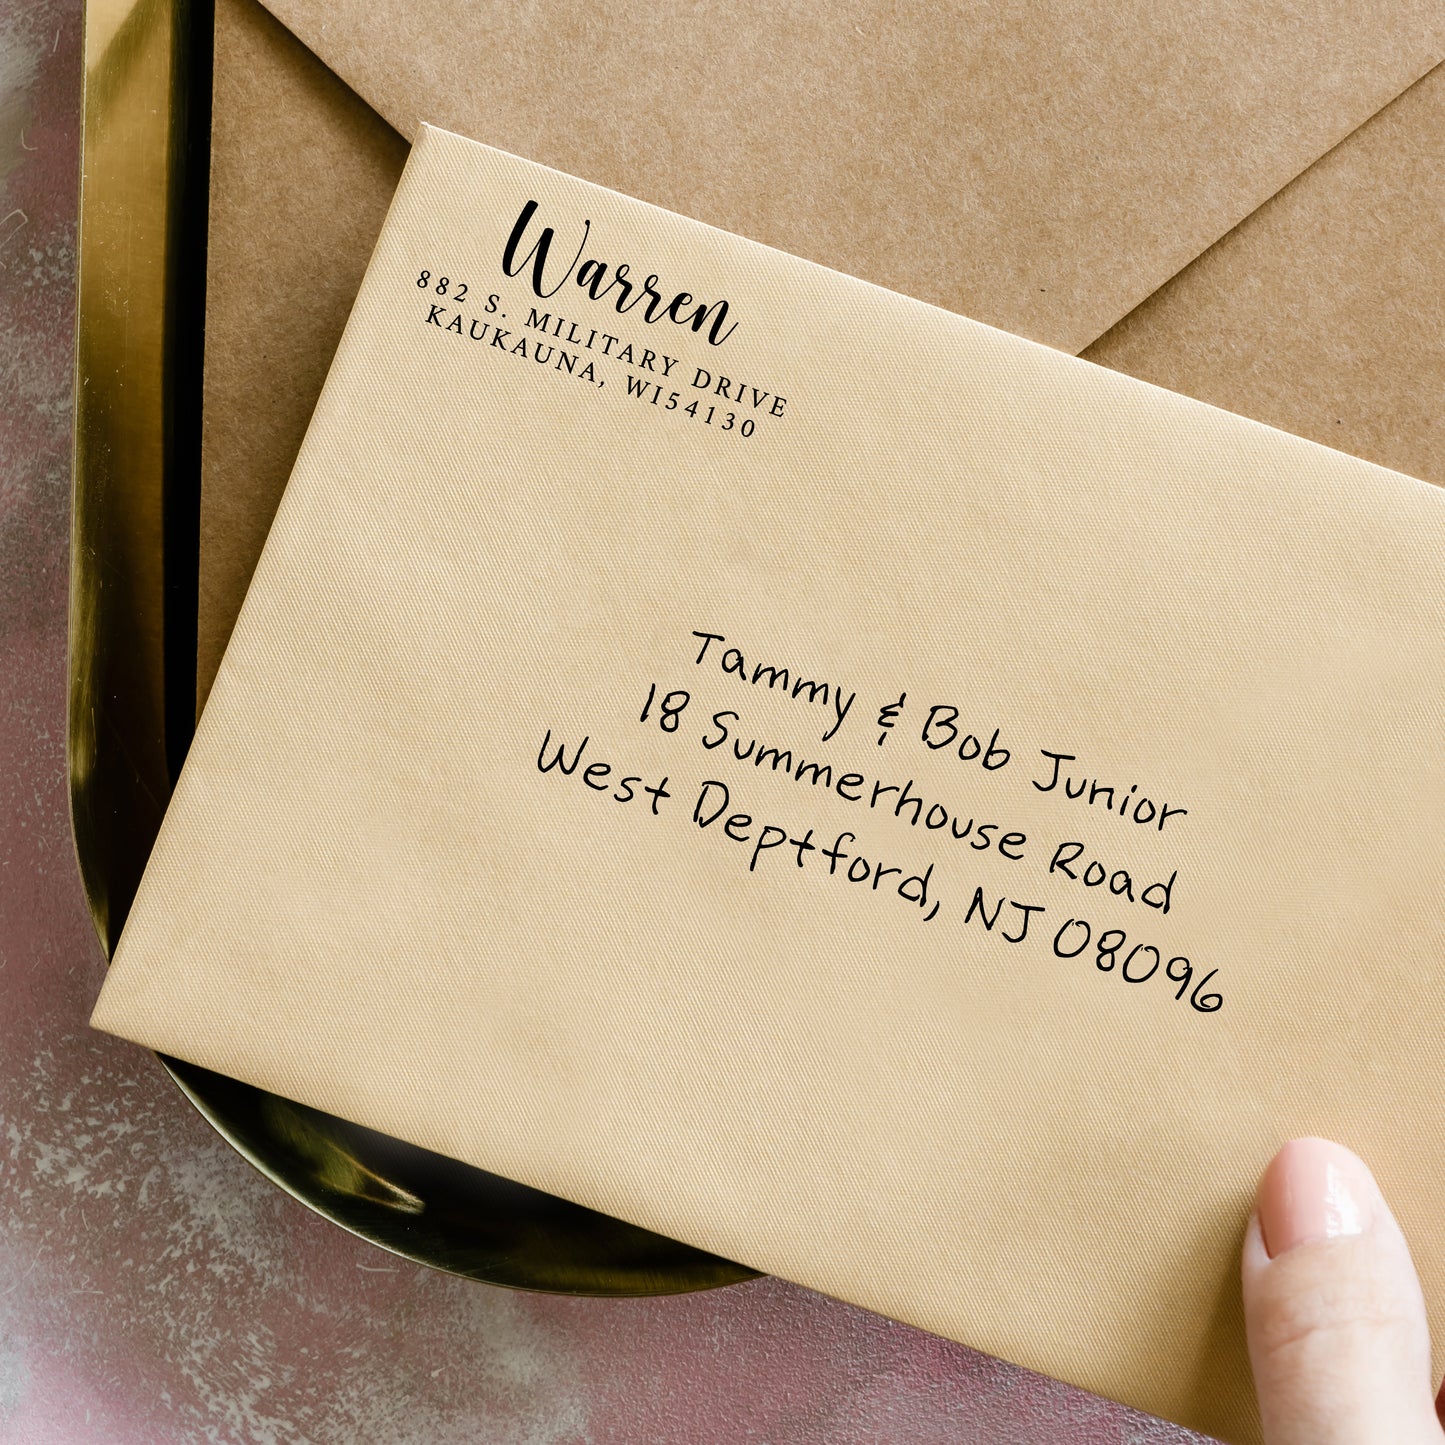 Warren
882 S. MILITARY DRIVE
KAUKAUNA, WI54130
Tammy & Bob Junior
18 Summerhouse Road
West Deptford, NJ 08096